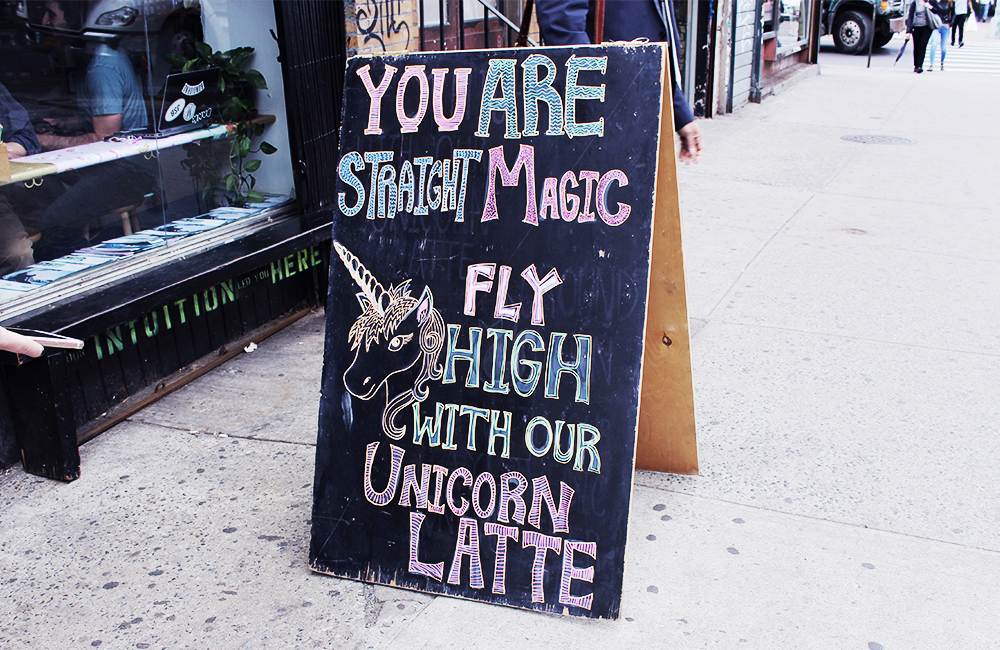 YOU ARE
STRAIGHT MAGIC
FLY
HIGH
WITH OUR
UNICORN
LATTE
INTUITION LED YOU HERE